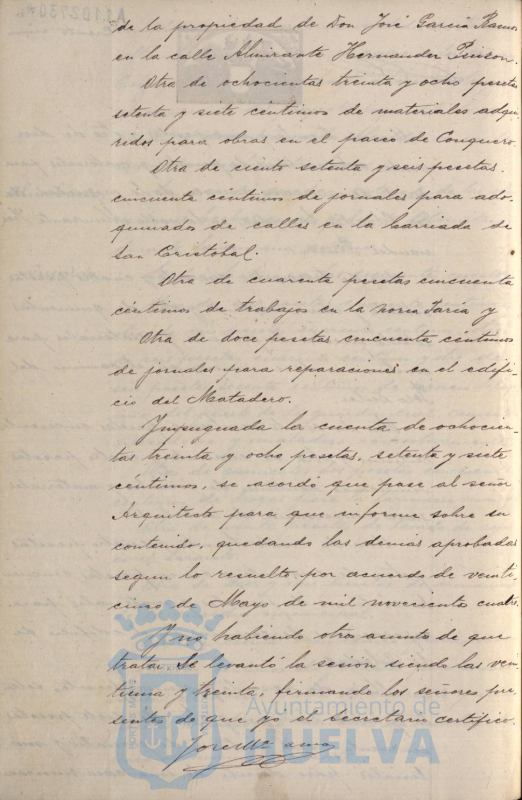 de la propiedad de Don José García Ramos
en la calle Almirante Hernandez Pinson.
Otra de ochocientas treinta y ocho pesetas
setenta y siete céntimos de materiales adqui
ridos para obras en el paseo de Conquero.
Otra de ciento setenta y seis pesetas.
cincuenta céntimos de jornales para ado-
quinados de calles en la barriada de
San Cristóbal.
Otra de cuarenta pesetas cincuenta
céntimos de trabajos en la noria Faria y
Otra de doce pesetas cincuenta centimos
de jornales para reparaciones en el edifi-
cio del Matadero.
Impugnada la cuenta de ochocien-
tas treinta y ocho pesetas, setenta y siete
centimos, se acordó que pase al señor
Arquitecto para que informe sobre su
contenido, quedando las demas aprobadas
segun lo resuelto por acuerdo de veinti
cinco de Mayo de mil novecientos cuatro.
Y no habiendo otro asunto de que
tratar se levantó la sesión siendo las vein
tiuna y treinta, firmando los señores pre
sentes de que yo el Secretario certifico.
Ayuntamiento de
HUELVA